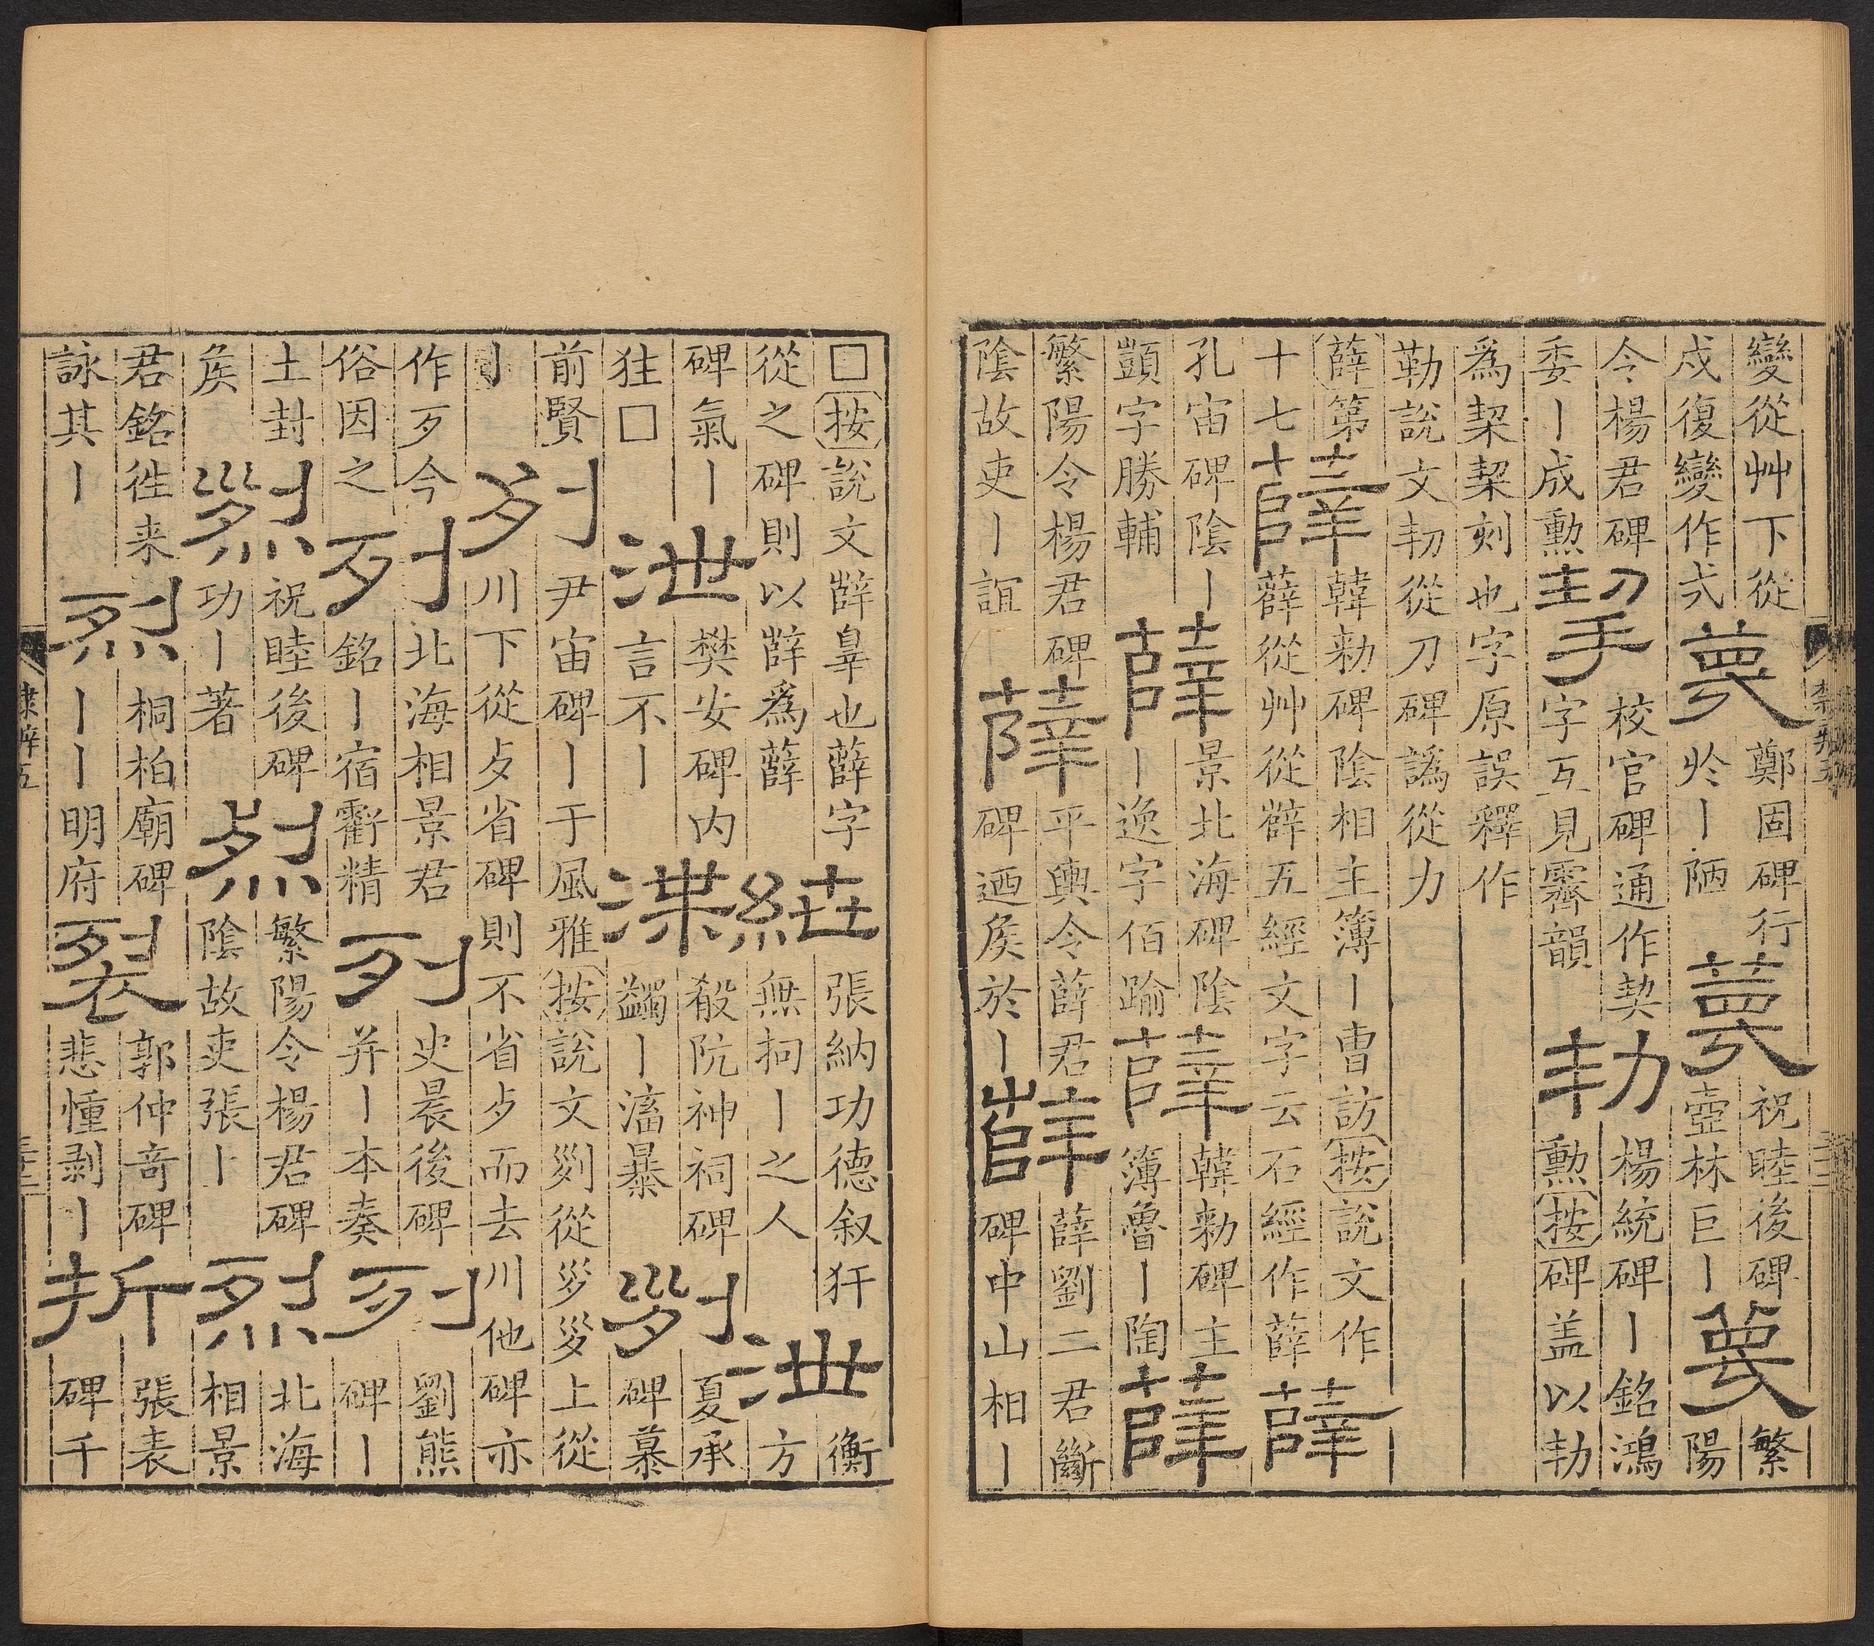 變從艸下從
戍復變作戈
蔑
鄭固碑行
於丨陋
蔑
祝睦後碑
壺林巨丨
蔑
繁
陽
令楊君碑
委丨成勲
挈
校官碑通作契
字互見霽韻
㓞
楊統碑丨銘鴻
勲按碑盖以㓞
爲栔栔刻也字原誤釋作
勒說文㓞從刀碑譌從力
薛第
十七
薛
韓勑碑陰相主簿丨曹訪按說文作
薛從艸從辥五經文字云石經作薛
薛
孔宙碑陰丨
顗字勝輔
薛
景北海碑陰
丨逸字佰踰
薛
韓勑碑主
簿魯丨陶
薛
繁陽令楊君碑
陰故吏丨誼
薛
平輿令薛君
碑迺矦於丨
薛
薛劉二君斷
碑中山相丨
□按說文辥辠也薛字
從之碑則以辥爲薛
紲
張納功德叙犴
無拘丨之人
泄
衡
方
碑氣丨
狂□
泄
樊安碑内
言不丨
渫
殽阬神祠碑
蠲丨滀暴
列
夏承
碑慕
前賢
丨
列
尹宙碑丨于風雅按說文𠛱從𡿪𡿪上從
川下從歺省碑則不省歺而去川他碑亦
作歹今
俗因之
列
北海相景君
銘丨宿斵精
列
史晨後碑
并丨本奏
列
劉熊
碑丨
土封
矦
烈
祝睦後碑
功丨著
烈
繁陽令楊君碑
陰故吏張丨
烈
北海
相景
君銘徃来
詠其丨
烈
桐柏廟碑
丨丨明府
裂
郭仲奇碑
悲慟剥丨
折
張表
碑千
隸辨五